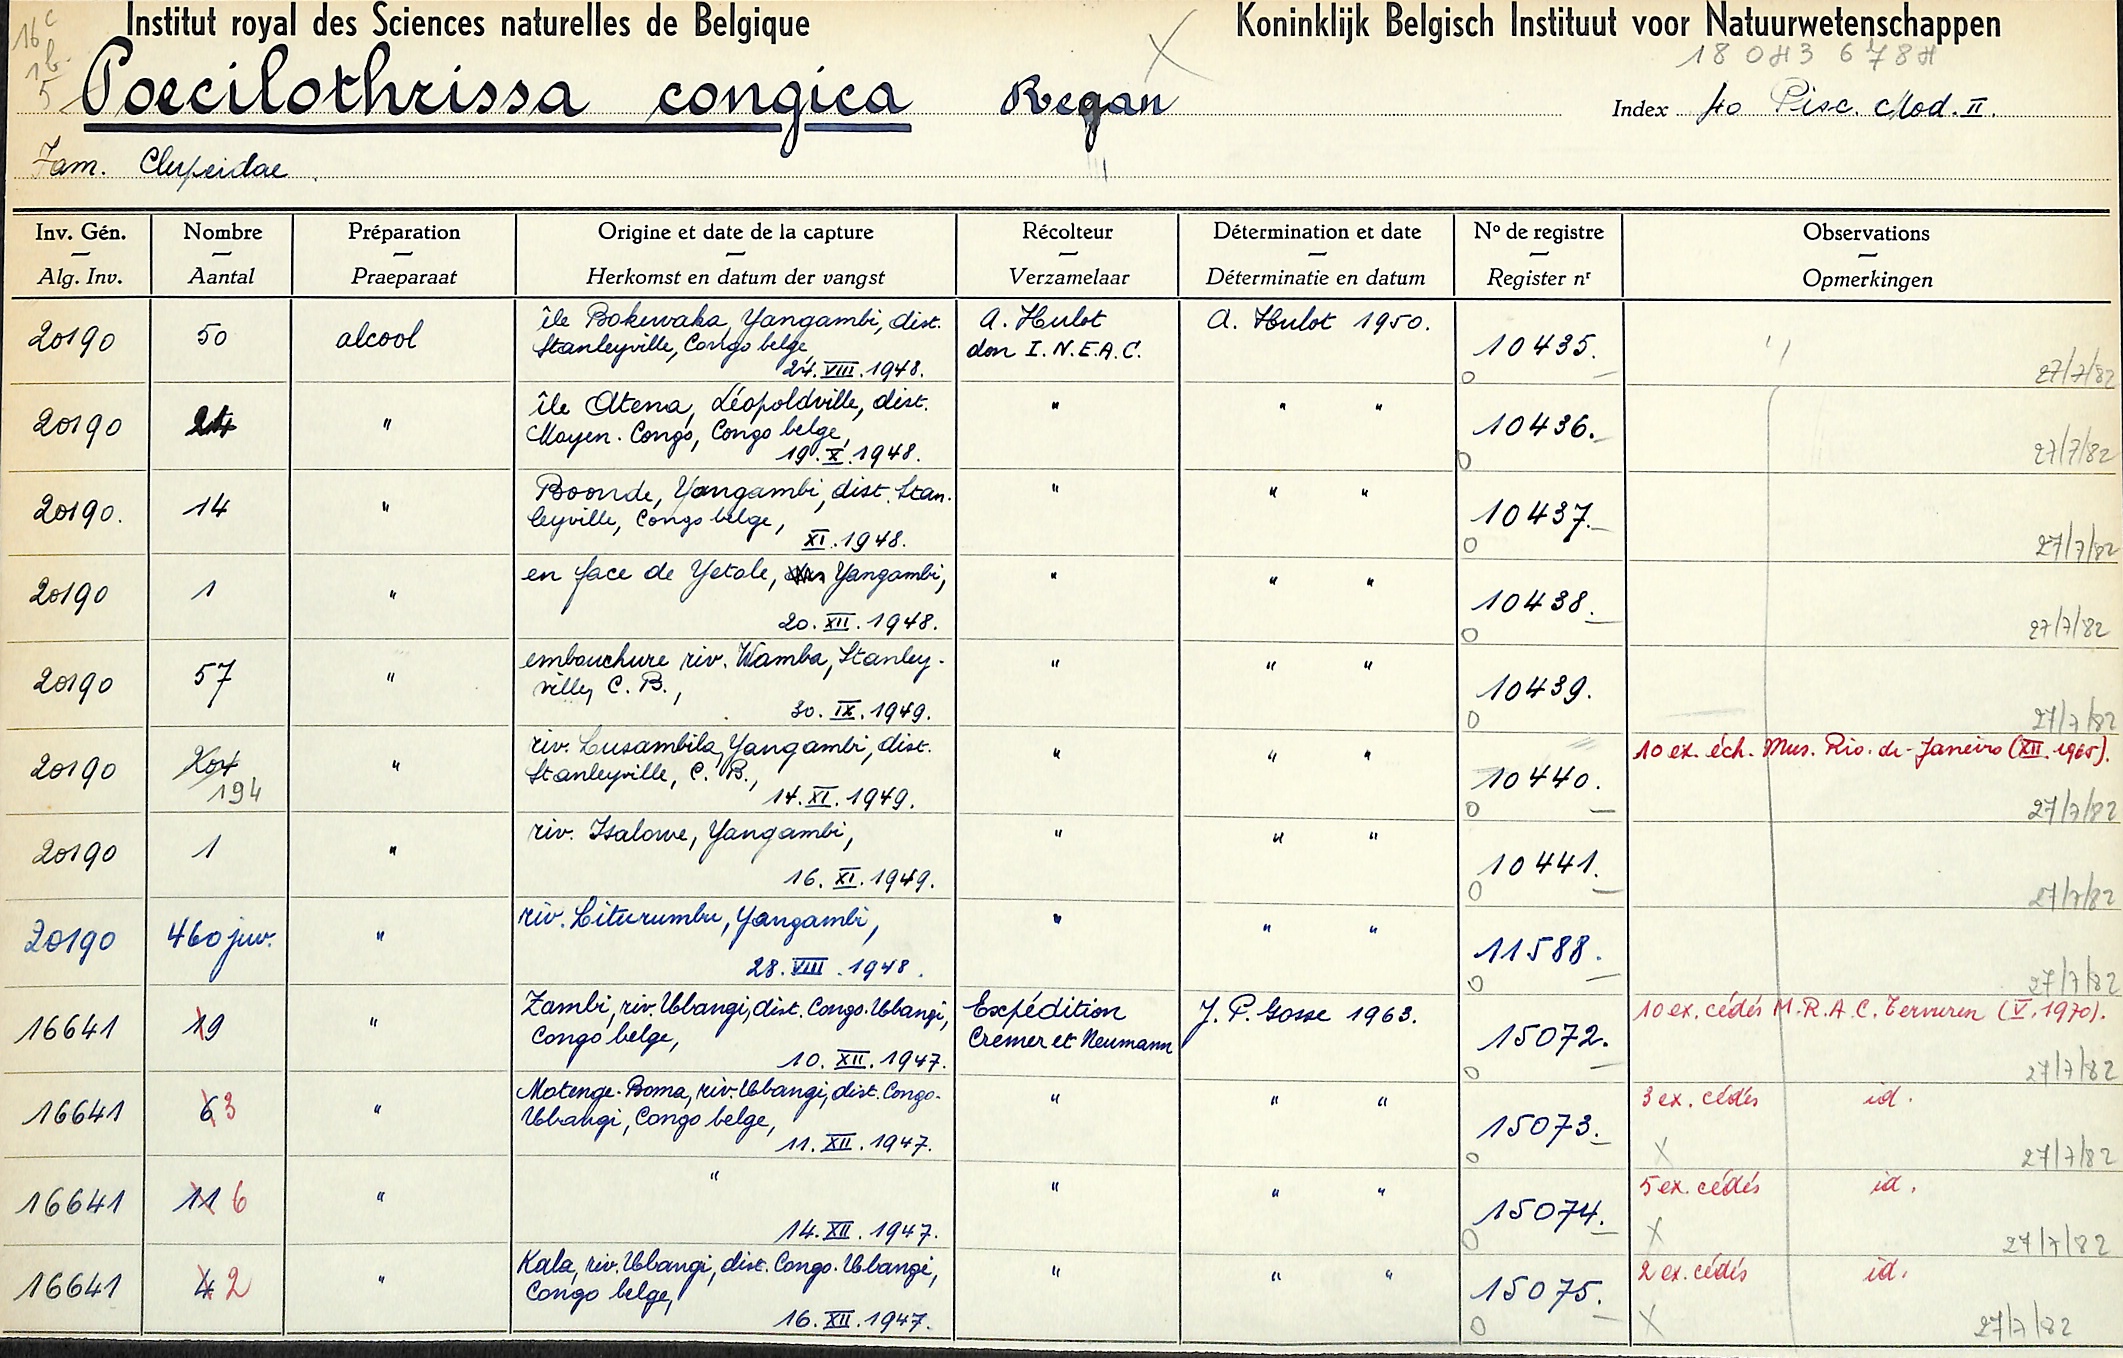 16 c
1b.
5
Institut royal des Sciences naturelles de Belgique Koninklijk Belgisch Instituut voor Natuurwetenschappen
Poecilothrissa congica Regan
Index 40 Pisc. Mod. II.
Fam. Clupeidae
Inv. Gén. Nombre Préparation Origine et date de la capture Récolteur Détermination et date No de registre Observations
Alg. Inv. Aantal Praeparaat Herkomst en datum der vangst Verzamelaar Déterminatie en datum Register nr Opmerkingen
20190 50 alcool île Bokuwaka, Yangambi, dist. A. Hulot A. Hulot 1950. 10435.
Stanleyville, Congo belge, don I.N.E.A.C.
24.VIII.1948. 27/7/82
20190 24 " île Atena, Léopoldville, dist. " " " 10436.
Moyen-Congo, Congo belge,
19.X.1948. 27/7/82
20190. 14 " Boonde, Yangambi, dist. Stan- " " " 10437.
leyville, Congo belge,
XI.1948. 27/7/82
20190 1 " en face de Yetale, Yangambi, " " " 10438.
20.XII.1948. 27/7/82
20190 57 " embouchure riv. Wamba, Stanley- " " " 10439.
ville, C.B.,
30.IX.1949. 27/7/82
20190 204 " riv. Lusambila, Yangambi, dist. " " " 10440. 10 ex. éch. Mus. Rio-de-Janeiro (XII.1965).
194 Stanleyville, C.B.,
14.XI.1949. 27/7/82
20190 1 " riv. Isalowe, Yangambi, " " " 10441.
16.XI.1949. 27/7/82
20190 460 juv. " riv. Liturumbu, Yangambi, " " " 11588.
28.VIII.1948. 27/7/82
16641 19 " Zambi, riv. Ubangi, dist. Congo-Ubangi, Expédition J.P. Gosse 1963. 15072. 10 ex. cédés M.R.A.C. Tervuren (V.1970).
Congo belge, Cremer et Neumann
10.XII.1947. 27/7/82
16641 6 3 " Motenge-Boma, riv. Ubangi, dist. Congo- " " " 15073. 3 ex. cédés id.
Ubangi, Congo belge,
11.XII.1947. X 27/7/82
16641 11 6 " " " " " 15074. 5 ex. cédés id.
14.XII.1947. X 27/7/82
16641 4 2 " Kala, riv. Ubangi, dist. Congo-Ubangi, " " " 15075. 2 ex. cédés id.
Congo belge,
16.XII.1947. X 27/7/82